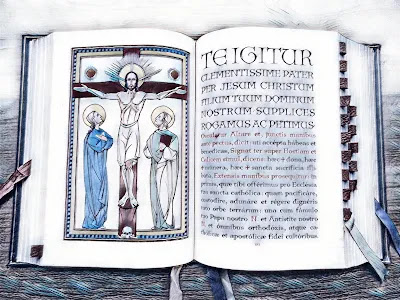 TE IGITUR
CLEMENTISSIME PATER
PER JESUM CHRISTUM
FILIUM TUUM DOMINUM
NOSTRUM SUPPLICES
ROGAMUS AC PETIMUS
Osculatur Altare et, junctis manibus ante
pectus, dicit: uti accépta hábeas et
benedícas, Signat ter super Hostiam et
Cálicem simul, dicens: hæc ✠ dona, hæc
✠ múnera, hæc ✠ sancta sacrifícia
Extensis manibus prosequitur: in
primis, quæ tibi offérimus pro Ecclesia
tua sancta cathólica: quam pacificáre,
custodíre, adunáre et régere dignéris
toto orbe terrárum: una cum fámulo
tuo Papa nostro N. et Antístite nostro
N. et ómnibus orthodóxis, atque ca-
thólicæ et apostólicæ fídei cultóribus.